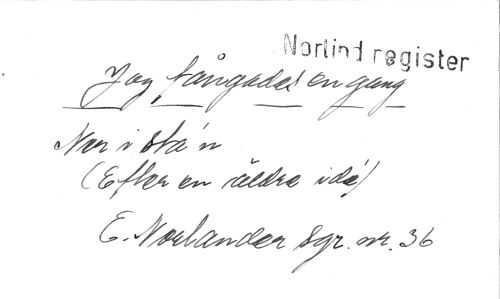 Norlind register
Jag fångades en gång
Ner i sta'n
(Efter en äldre idé)
E. Norlander Sgr. nr. 36